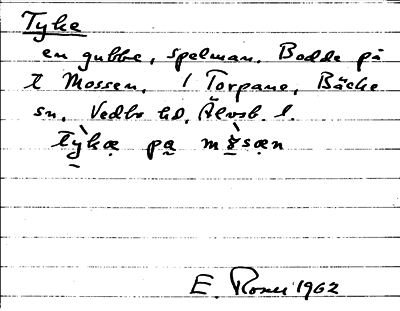 Tyke
en gubbe, spelman. Bodde på
t Mossen, / Torpane, Bäcke
sn, Vedbo hd, Älvsb. l.
tỳkæ pa mòsæn
E. Rosell 1962